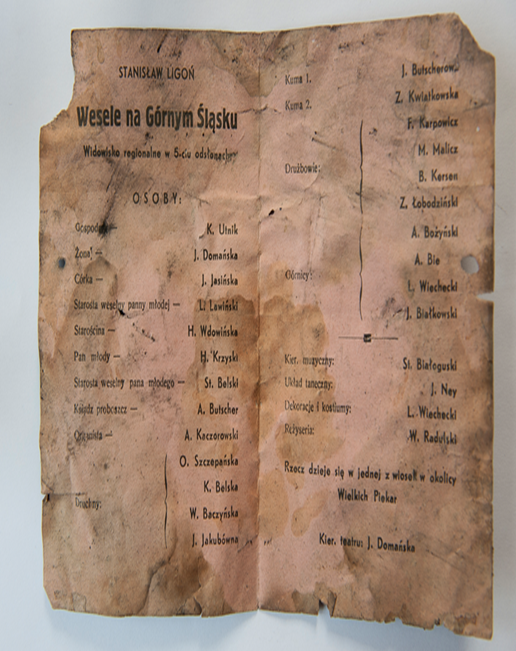 STANISŁAW LIGOŃ
Wesele na Górnym Śląsku
Widowisko regionalne w 5-ciu odsłonach
OSOBY:
Gospodarz — K. Utnik
Żona — J. Domańska
Córka — J. Jasińska
Starosta weselny panny młodej — L. Lawiński
Starościna — H. Wdowińska
Pan młody — H. Krzyski
Starosta weselny pana młodego — St. Belski
Ksiądz proboszcz — A. Butscher
Organista — A. Kaczorowski
O. Szczepańska
K. Belska
Druchny:
W. Baczyńska
J. Jakubówna
Kuma 1. J. Butscherow
Kuma 2. Z. Kwiatkowska
F. Karpowicz
M. Malicz
Drużbowie: B. Kersen
Z. Łobodziński
A. Bożyński
A. Bie
Górnicy: L. Wiechecki
J. Białkowski
Kier. muzyczny: St. Białoguski
Układ taneczny: J. Ney
Dekoracje i kostiumy: L. Wiechecki
Reżyseria: W. Radulski
Rzecz dzieje się w jednej z wiosek w okolicy
Wielkich Piekar
Kier. teatru: J. Domańska